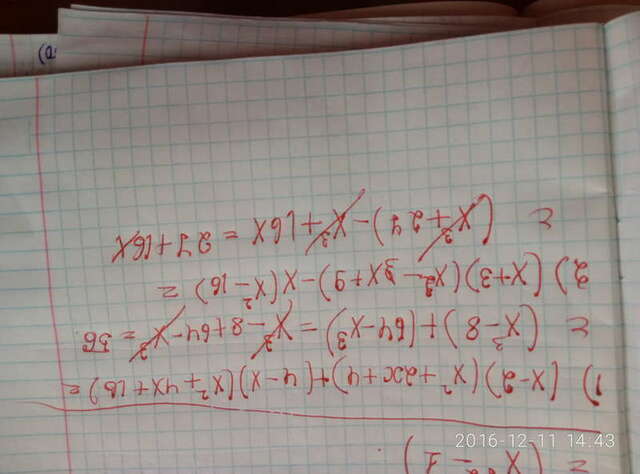 = (x - 1)
1) (x-2)(x²+2x+4)+(4-x)(x²+4x+16)=
= (x³-8)+(64-x³)=x³-8+64-x³=56
2) (x+3)(x²-3x+9)-x(x²-16)=
= (x³+27)-x³+16x=27+16x
2016-12-11 14:43